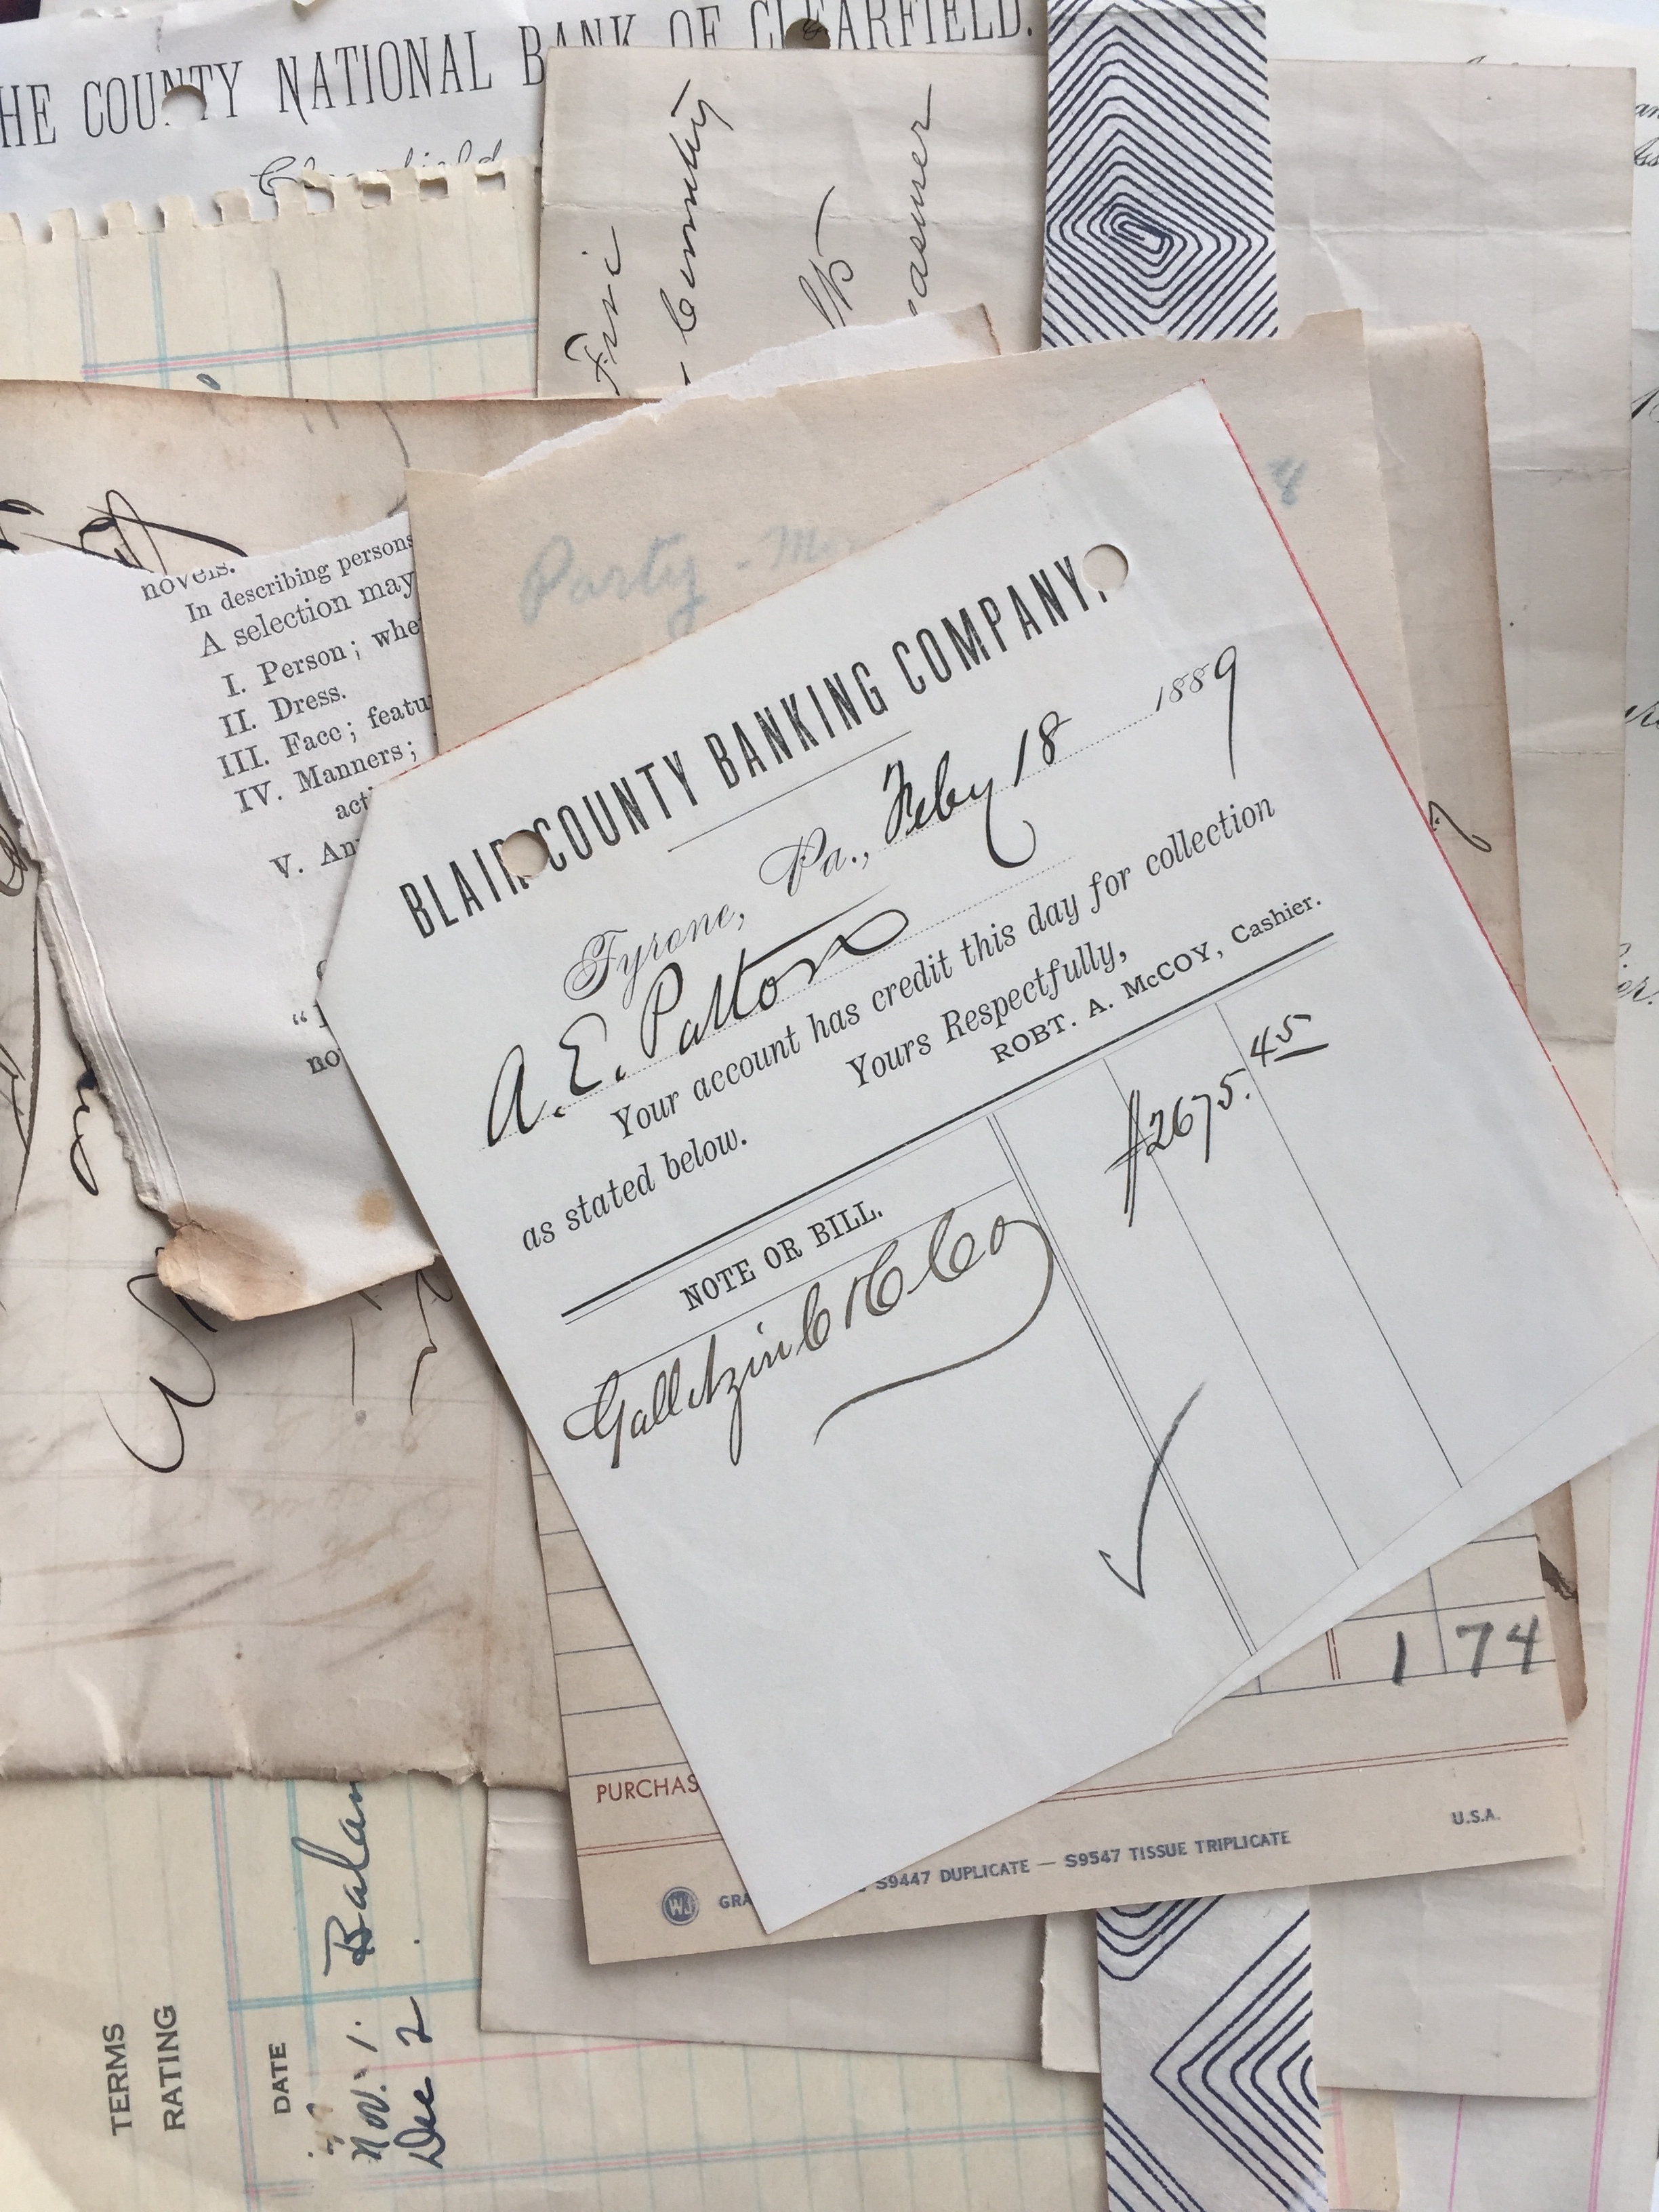 THE COUNTY NATIONAL BANK OF CLEARFIELD.
Clearfield
County
Party -
8
novels.
In describing persons
A selection may
I. Person; whe
II. Dress.
III. Face; featu
IV. Manners;
acti
V. An
no
BLAIR COUNTY BANKING COMPANY.
Tyrone, Pa., Feby 18 1889
A. E. Patton
Your account has credit this day for collection
as stated below.
Yours Respectfully,
ROBT. A. McCOY, Cashier.
NOTE OR BILL.
$2675.45
Gallitzin C & C Co
1 74
PURCHAS
WJ GRA S9447 DUPLICATE — S9547 TISSUE TRIPLICATE U.S.A.
TERMS
RATING
DATE
Nov. 1. Balan
Dec 2